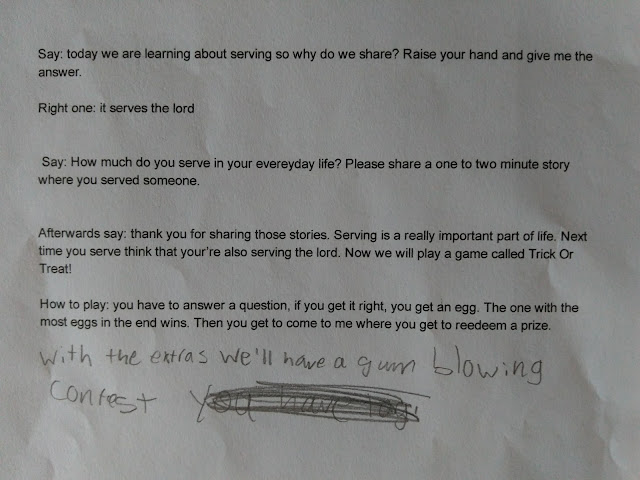 Say: today we are learning about serving so why do we share? Raise your hand and give me the
answer.
Right one: it serves the lord
Say: How much do you serve in your evereyday life? Please share a one to two minute story
where you served someone.
Afterwards say: thank you for sharing those stories. Serving is a really important part of life. Next
time you serve think that your're also serving the lord. Now we will play a game called Trick Or
Treat!
How to play: you have to answer a question, if you get it right, you get an egg. The one with the
most eggs in the end wins. Then you get to come to me where you get to reedeem a prize.
with the extras we'll have a gum blowing
contest you have